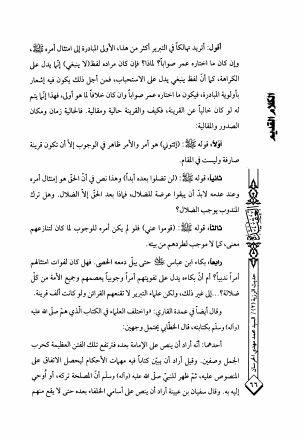 أقول: أتريد تهالكاً في التبرير أكثر من هذا، الأولى المبادرة إلى امتثال أمره ﷺ،
وإن كان ما اختاره عمر صواباً؟ لماذا؟ فإن كان مراده لفظ (لا ينبغي) إنّما يدل على
الكراهة، كما أنّ لفظ ينبغي يدل على الاستحباب، فمن أجل ذلك يكون فيه إشعار
بأولوية المبادرة، فيكون ما اختاره عمر صواباً وإن كان خلافاً لما هو أولى، فهذا إنّما يتم
له لو كان خالياً عن القرينة، فكيف والقرينة حالية ومقالية. فالحالية زمان ومكان
الصدور والمقالية:
أولاً، قوله ﷺ: (إئتوني) هو أمر والأمر ظاهر في الوجوب إلاّ أن تكون قرينة
صارفة وليست في المقام.
ثانياً، قوله ﷺ: (لن تضلوا بعده أبداً) وهذا نص في أنّ الحقّ هو امتثال أمره
وعند عدمه لابدّ أن يبقوا عرضة للضلال، فماذا بعد الحقّ إلاّ الضلال. وهل ترك
المندوب يوجب الضلال؟
ثالثاً، قوله ﷺ: (قوموا عني) فلو لم يكن أمره للوجوب لما كان لتنازعهم
معنى، كما لا موجب لطردهم من بيته.
رابعاً، بكاء ابن عباس حتى يبلّ دمعه الحصى. فهل كان لفوات امتثالهم
أمراً ندبياً؟ أم أنّ بكاءه يدل على تفويتهم أمراً وجوبياً يعصمهم وجميع الأمة من كلّ
ضلالة؟... إلى غير ذلك، ولكن علماء التبرير لا تقنعهم القرائن ولو كانت ألف قرينة.
وقال أيضاً في عمدة القاري: «واختلف العلماء في الكتاب الذي همّ صلّى الله عليه
(وآله) وسلّم بكتابته، قال الخطابي يحتمل وجهين:
أحدهما: أنّه أراد أن ينص على الإمامة بعده فترتفع تلك الفتن العظيمة كحرب
الجمل وصفين. وقيل أراد أن يبيّن كتاباً فيه مهمات الأحكام ليحصل الاتفاق على
المنصوص عليه، ثمّ ظهر للنبيّ صلّى الله عليه (وآله) وسلّم أنّ المصلحة تركه، أو أُوحي
إليه به. وقال سفيان بن عيينة أراد أن ينص على أسامي الخلفاء بعده حتى لا يقع منهم
الكلام القديم
حديث الرزية (١٢) / السيد محمد مهدي الخرسان
٦٦